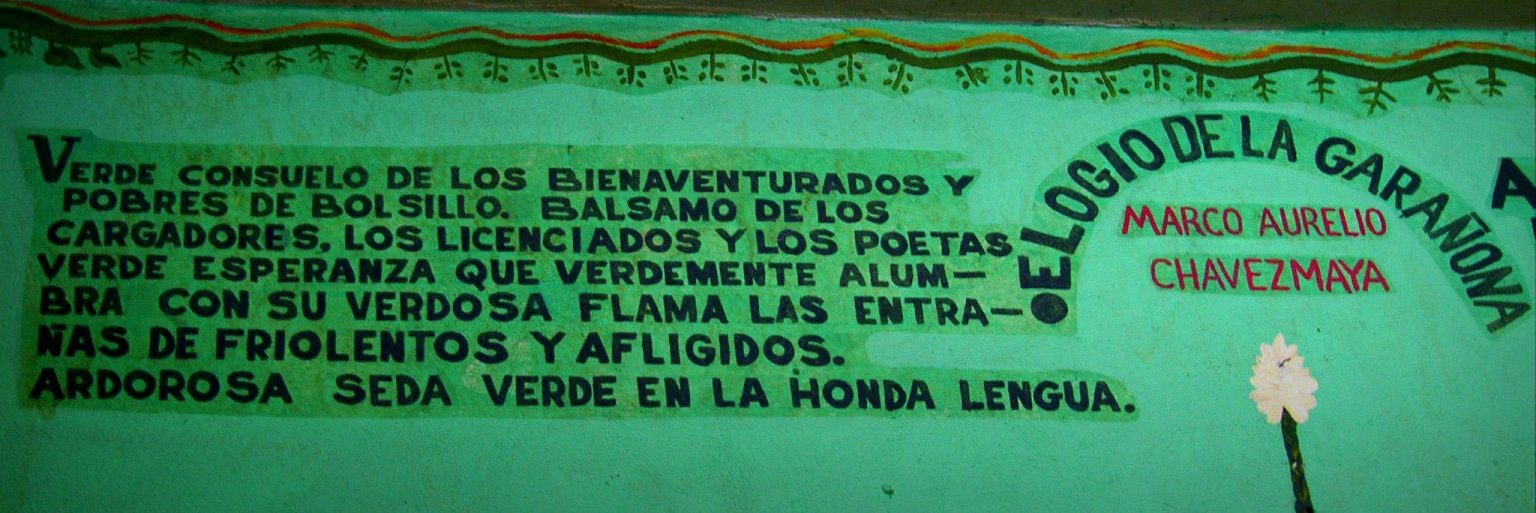 VERDE CONSUELO DE LOS BIENAVENTURADOS Y
POBRES DE BOLSILLO. BALSAMO DE LOS
CARGADORES, LOS LICENCIADOS Y LOS POETAS
VERDE ESPERANZA QUE VERDEMENTE ALUM—
BRA CON SU VERDOSA FLAMA LAS ENTRA—
ÑAS DE FRIOLENTOS Y AFLIGIDOS.
ARDOROSA SEDA VERDE EN LA HONDA LENGUA.
ELOGIO DE LA GARAÑONA
MARCO AURELIO
CHAVEZMAYA
A